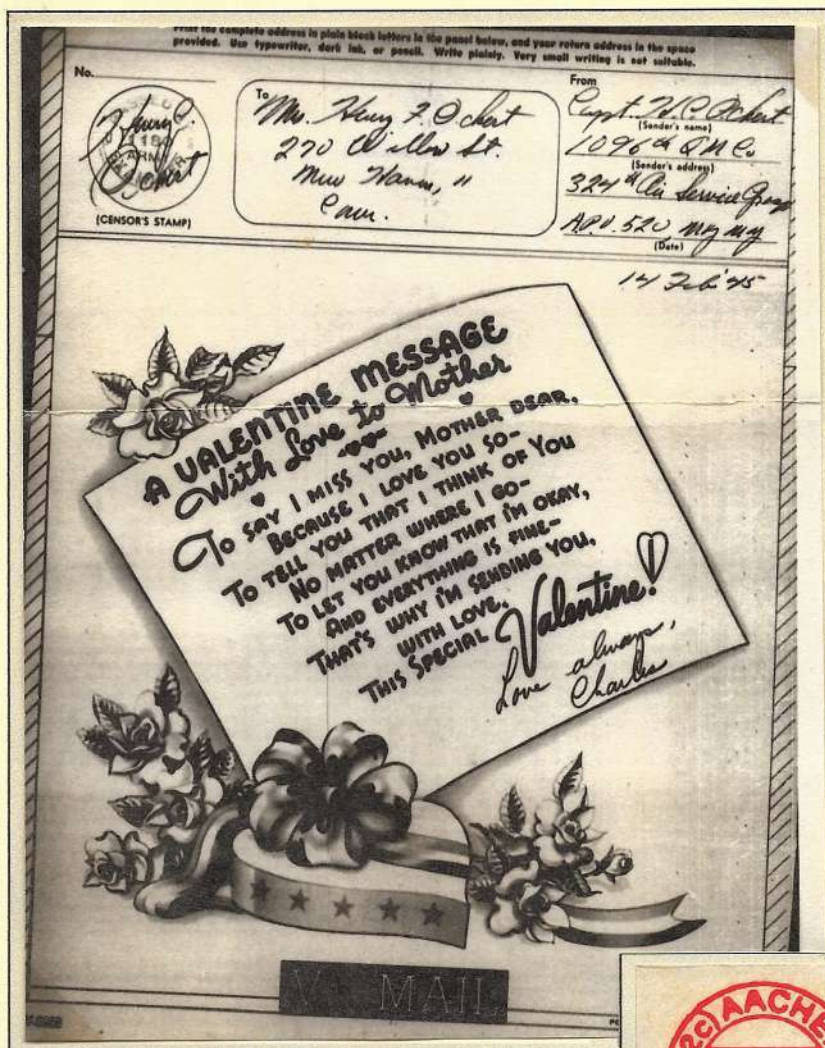 Print the complete address in plain block letters in the panel below, and your return address in the space
provided. Use typewriter, dark ink, or pencil. Write plainly. Very small writing is not suitable.
No.
(CENSOR'S STAMP)
To
Mrs. Henry F. Ochert
270 Willow St.
New Haven, 11
Conn.
From
Capt. H. C. Ochert
(Sender's name)
1096th QM Co
(Sender's address)
324th Air Service Group
A.P.O. 520 NY NY
(Date)
14 Feb '45
A VALENTINE MESSAGE
With Love to Mother
TO SAY I MISS YOU, MOTHER DEAR,
BECAUSE I LOVE YOU SO-
TO TELL YOU THAT I THINK OF YOU
NO MATTER WHERE I GO-
TO LET YOU KNOW THAT I'M OKAY,
AND EVERYTHING IS FINE-
THAT'S WHY I'M SENDING YOU,
WITH LOVE,
THIS SPECIAL Valentine!
Love always,
Charles
V MAIL
2c) AACHE